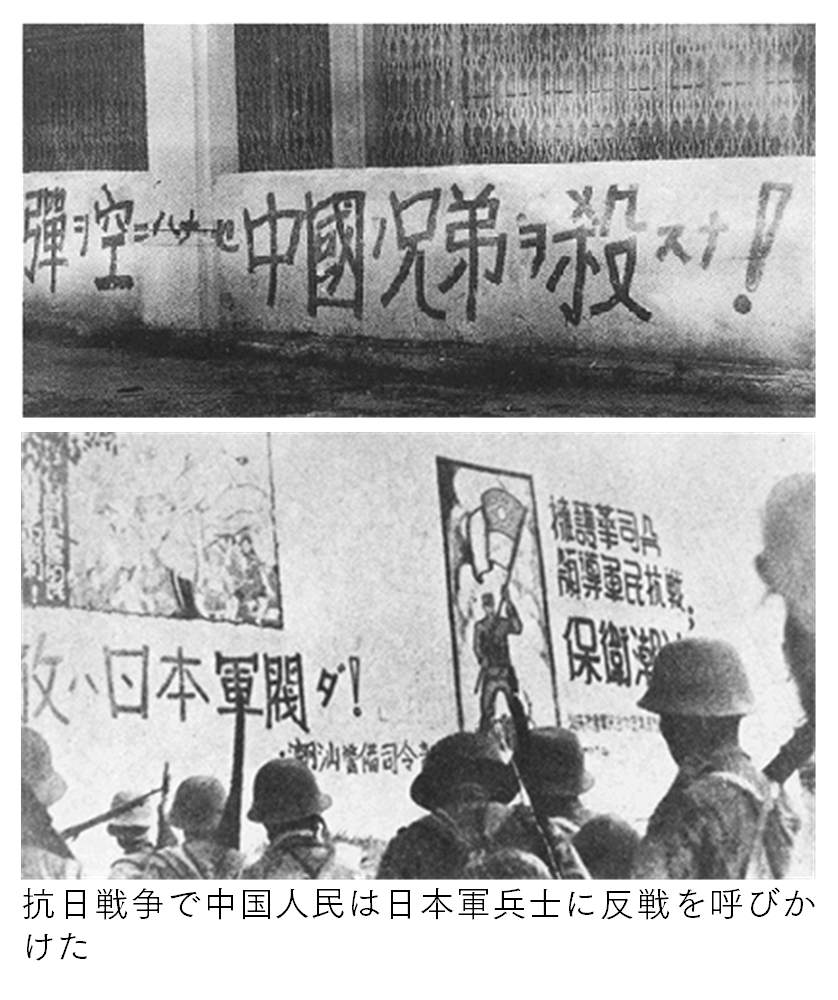 彈ヲ空ニハナセ中國ノ兄弟ヲ殺スナ!
ハ日本軍閥ダ!
潮汕警備司令
擁護華司令
領導軍民抗戰;
保衛潮
抗日戦争で中国人民は日本軍兵士に反戦を呼びか
けた